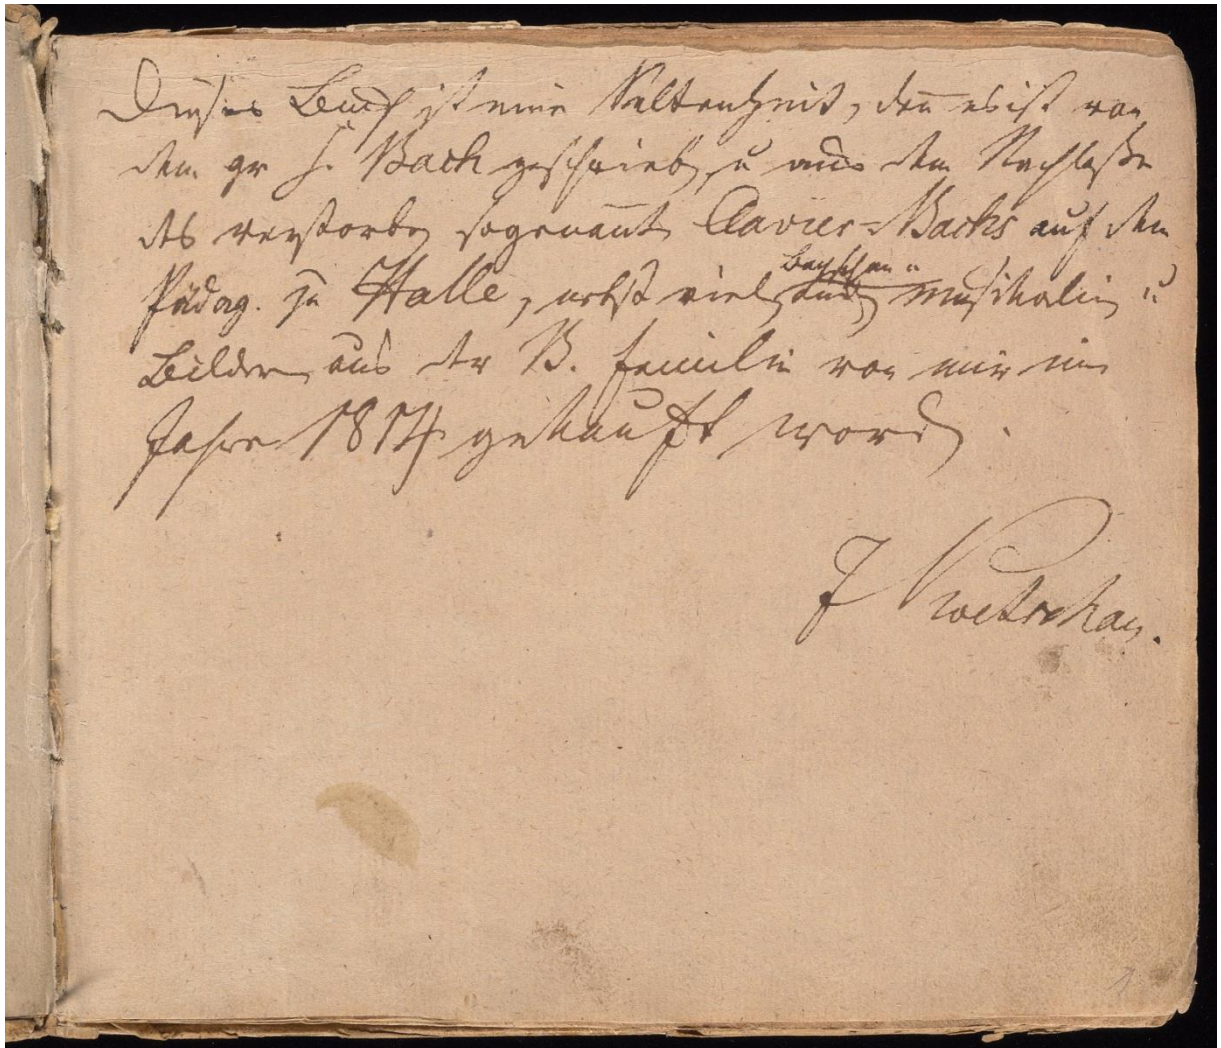 Dieses Buch ist eine Seltenheit, deñ es ist von
dem gr S. Bach geschrieben, u aus dem Nachlaße
des verstorben sogenañt Clavier=Bachs auf dem
Pädag. zu Halle, nebst vielen
Bachschen
Musikalien u
Bilder aus der B. Familie von mir im
Jahre 1814 gekauft worden.
J Koetschau.